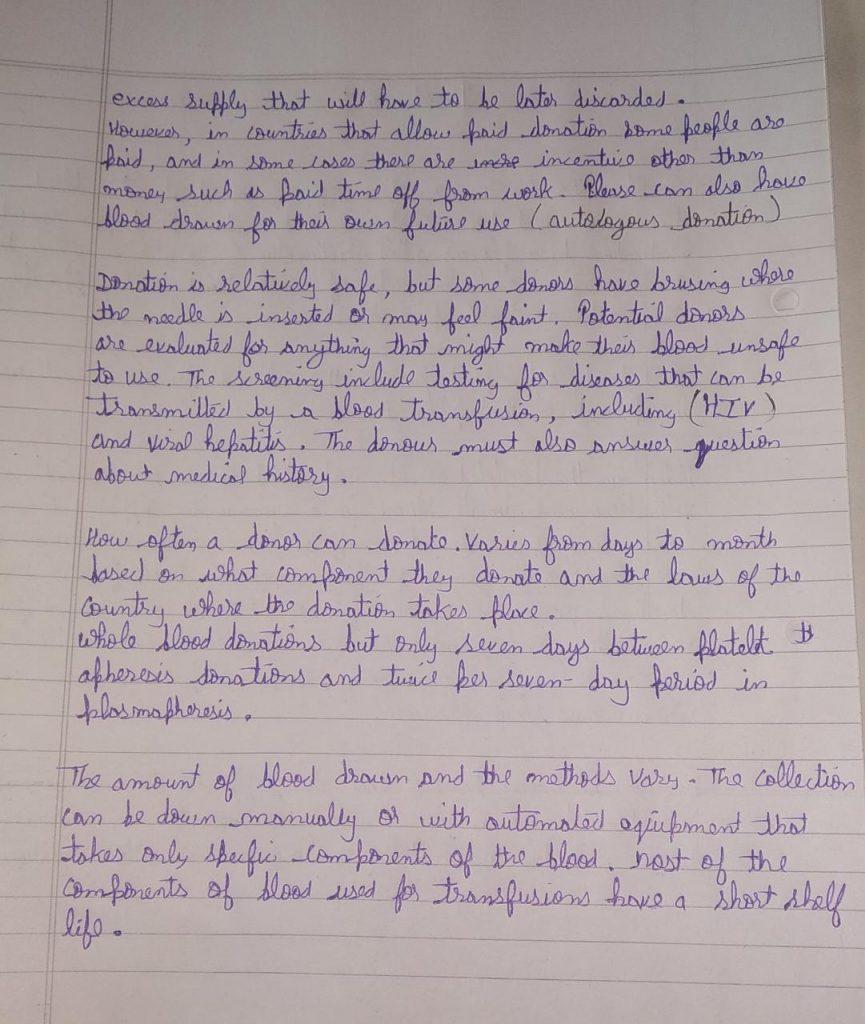 excess supply that will have to be later discarded.
However, in countries that allow paid donation some people are
paid, and in some cases there are incentive other than
money such as paid time off from work. Please can also have
blood drawn for their own future use (autologous donation)
Donation is relatively safe, but some donors have brusing where
the needle is inserted or may feel faint. Potential donors
are evaluated for anything that might make their blood unsafe
to use. The screening include testing for diseases that can be
transmitted by a blood transfusion, including (HIV)
and viral hepatitis. The donous must also answer question
about medical history.
How often a donor can donate. varies from days to month
based on what component they donate and the laws of the
country where the donation takes place.
whole blood donations but only seven days between platelt
apheresis donations and twice per seven-day period in
plasmapheresis.
The amount of blood drawn and the methods vary. The collection
can be down manually or with automated equipment that
takes only specfic components of the blood. most of the
components of blood used for transfusions have a short shelf
life.